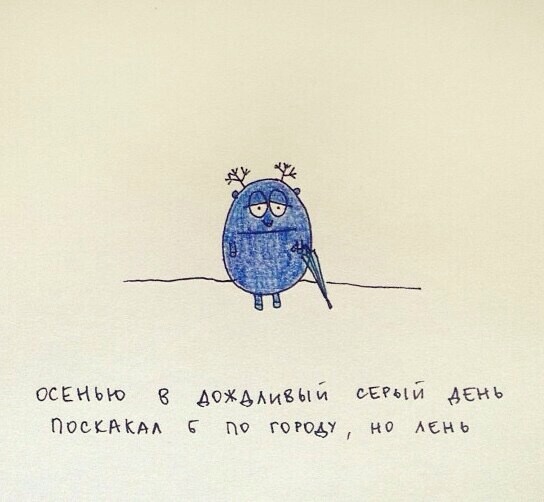 ОСЕНЬЮ В ДОЖДЛИВЫЙ СЕРЫЙ ДЕНЬ
ПОСКАКАЛ Б ПО ГОРОДУ, НО ЛЕНЬ